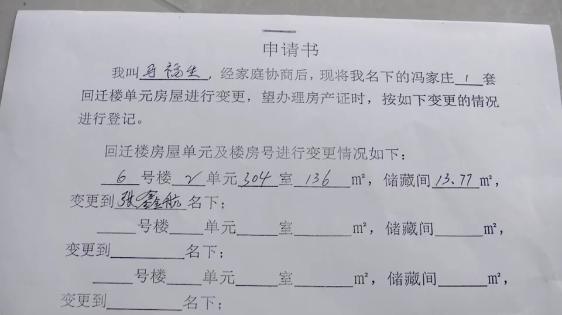 申请书
我叫 福生，经家庭协商后，现将我名下的冯家庄1套
回迁楼单元房屋进行变更，望办理房产证时，按如下变更的情况
进行登记。
回迁楼房屋单元及楼房号进行变更情况如下：
6号楼2单元304室136m²，储藏间13.77m²，
变更到张鑫航名下；
____号楼____单元____室____m²，储藏间____m²，
变更到____名下；
____号楼____单元____室____m²，储藏间____m²，
变更到____名下；